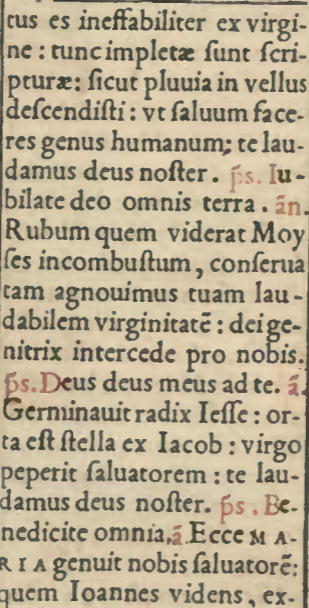 tus es ineffabiliter ex virgi-
ne : tunc impletæ sunt scri-
pturæ: sicut pluuia in vellus
descendisti : vt saluum face-
res genus humanum: te lau-
damus deus noster . p̄s. Iu-
bilate deo omnis terra . ān.
Rubum quem viderat Moy
ses incombustum , conserua
tam agnouimus tuam lau-
dabilem virginitatē : dei ge-
nitrix intercede pro nobis.
p̄s. Deus deus meus ad te. ā.
Germinauit radix Iesse : or-
ta est stella ex Iacob : virgo
peperit saluatorem : te lau-
damus deus noster. p̄s . Be-
nedicite omnia, ā. Ecce MA-
RIA genuit nobis saluatorē:
quem Ioannes videns , ex-